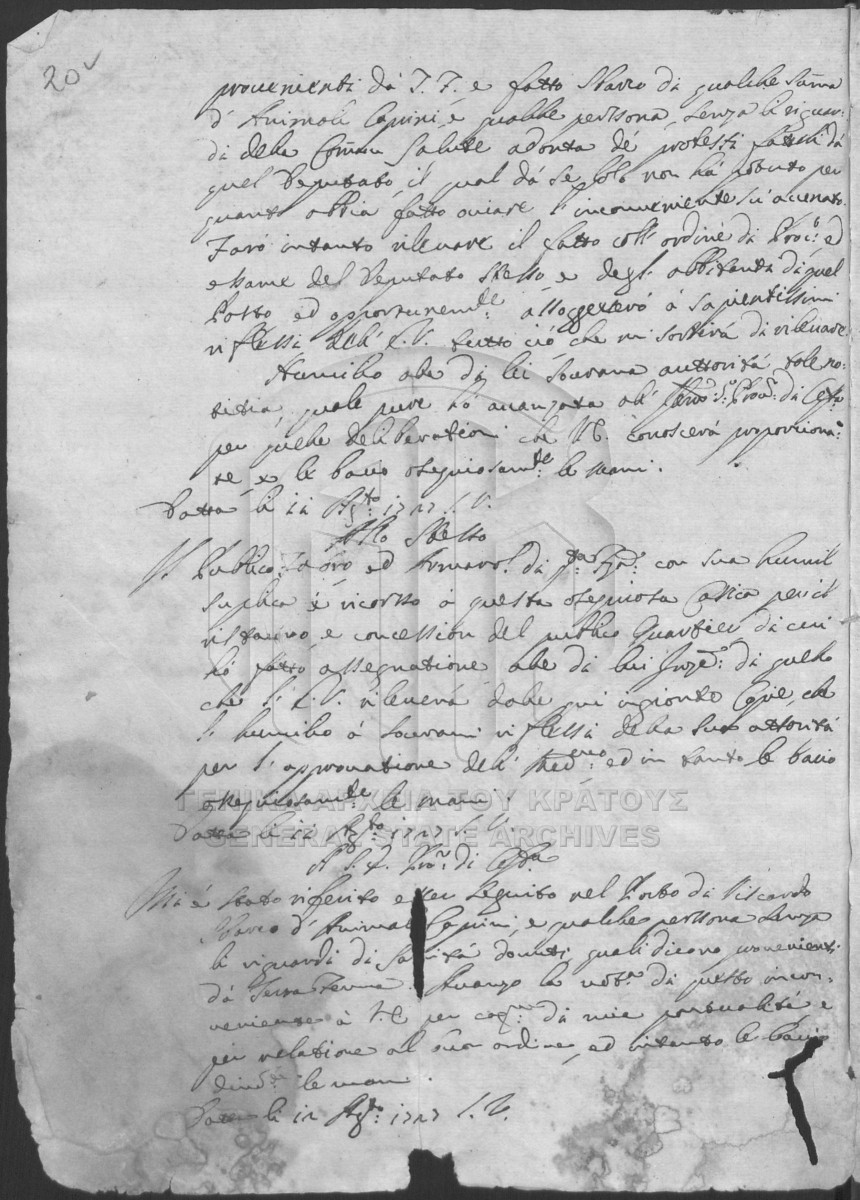 20v
provenienti da T. F. e fatto sbarco di qualche summa
d'Animali Caprini, e qualche persona senza li riguar=
di della Comun Salute adonta de protesti fattili da
quel Deputato, il qual da se solo non hà potuto per
quanto abbia fatto oviare l'inconveniente su accenato.
Farò intanto rilevare il fatto coll'ordine di Proc.º ed
esame del Deputato stesso e degl'abbitanti di quel
Porto ed opportunem.te assoggeterò à sapientissimi
riflessi dell'E.V. tutto ciò che mi sortirà di rilevare
Humilio alla di lei sovrana auttorità tale no=
titia, quale pure hò avanzata all' Prov.r di Ceff.a
per quelle deliberationi che conoscerà proporciona=
te e le baccio ossequiosam.te le mani.
Datta li 12 Ag.to 1727 S.V.
Allo Stesso
Il Publico ed Armarol di con sua humil
suplica è ricorso à questa ossequiosa Carica per il
ristauro e concession del publico Quartier di cui
hò fatto assegnatione alle di lui di quello
che l'E.V. rileverà dalle qui ingionte Copie, che
l'humilio à sovrani riflessi della Sua attorità
per l'approvatione dell' ed in tanto le baccio
ossequiosam.te le mani
Datta li 12 Ag.to 1727 S.V.
A S. E. Prov.r di Ceff.a
Mi è stato riferito esser seguito nel Porto di Viscardo
sbarco d'Animali Caprini, e qualche persona senza
li riguardi di Sanità dovuti, quali dicono provenienti
da Terra Ferma. Avanzo la not.a di questo incon=
veniente à V.E. per di mia pontualità, e
per relatione al suo ordine, ed intanto le baccio
le mani.
Datta li 12 Ag.to 1727 S.V.
ΓΕΝΙΚΑ ΑΡΧΕΙΑ ΤΟΥ ΚΡΑΤΟΥΣ
GENERAL STATE ARCHIVES